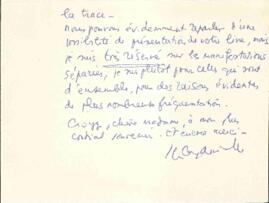 la trace –
Nous pouvons évidemment reparler d'une
possibilité de présentation de votre livre, mais
je suis très réservé sur les manifestations
séparées, je suis plutôt pour celles qui sont
d'ensemble, pour des raisons évidentes
de plus nombreuse fréquentation.
Croyez, chère Madame, à mon plus
cordial souvenir. Et encore merci –